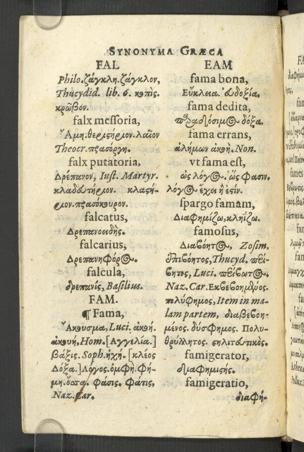 SYNONYMA GRÆCA
FAL
Philo. ζάγκλη. ζάγκλον,
Thucydid. lib. 6. κοπὶς.
κρῶβον.
falx messoria,
Theocr.
falx putatoria,
Δρέπανον, Iust. Martyr.
κλαδευτήριον.
falcatus,
Δρεπανοειδής.
falcarius,
Δρεπανηφόρος.
falcula,
δρεπανὶς, Basilius.
FAM.
¶ Fama,
Ἄκουσμα, Luci. ἀκοή.
ἀκουή, Hom. [Ἀγγελία.]
βάξις. Soph. ἠχή. [κλέος
Δόξα.] Λόγος. ὀμφή. φή-
μη. φάσις. φάτις,
Naz. Car.
EAM
fama bona,
Εὔκλεια. εὐδοξία.
fama dedita,
δόξα.
fama errans,
ἀλήμων ἀκοή. Non.
vt fama est,
ὡς λόγος. ὡς φασιν.
λόγος ἔχει
spargo famam,
Διαφημίζω, κληίζω.
famosus,
Διαβόητος, Zosim.
ἐπιβόητος, Thucyd. περι-
βόητος, Luci.
Naz. Car.
Item in ma
lam partem, διαβεβοη-
μένος. δύσφημος. Πολυ-
θρύλλητος.
famigerator,
διαφημιστής.
famigeratio,
διαφή-